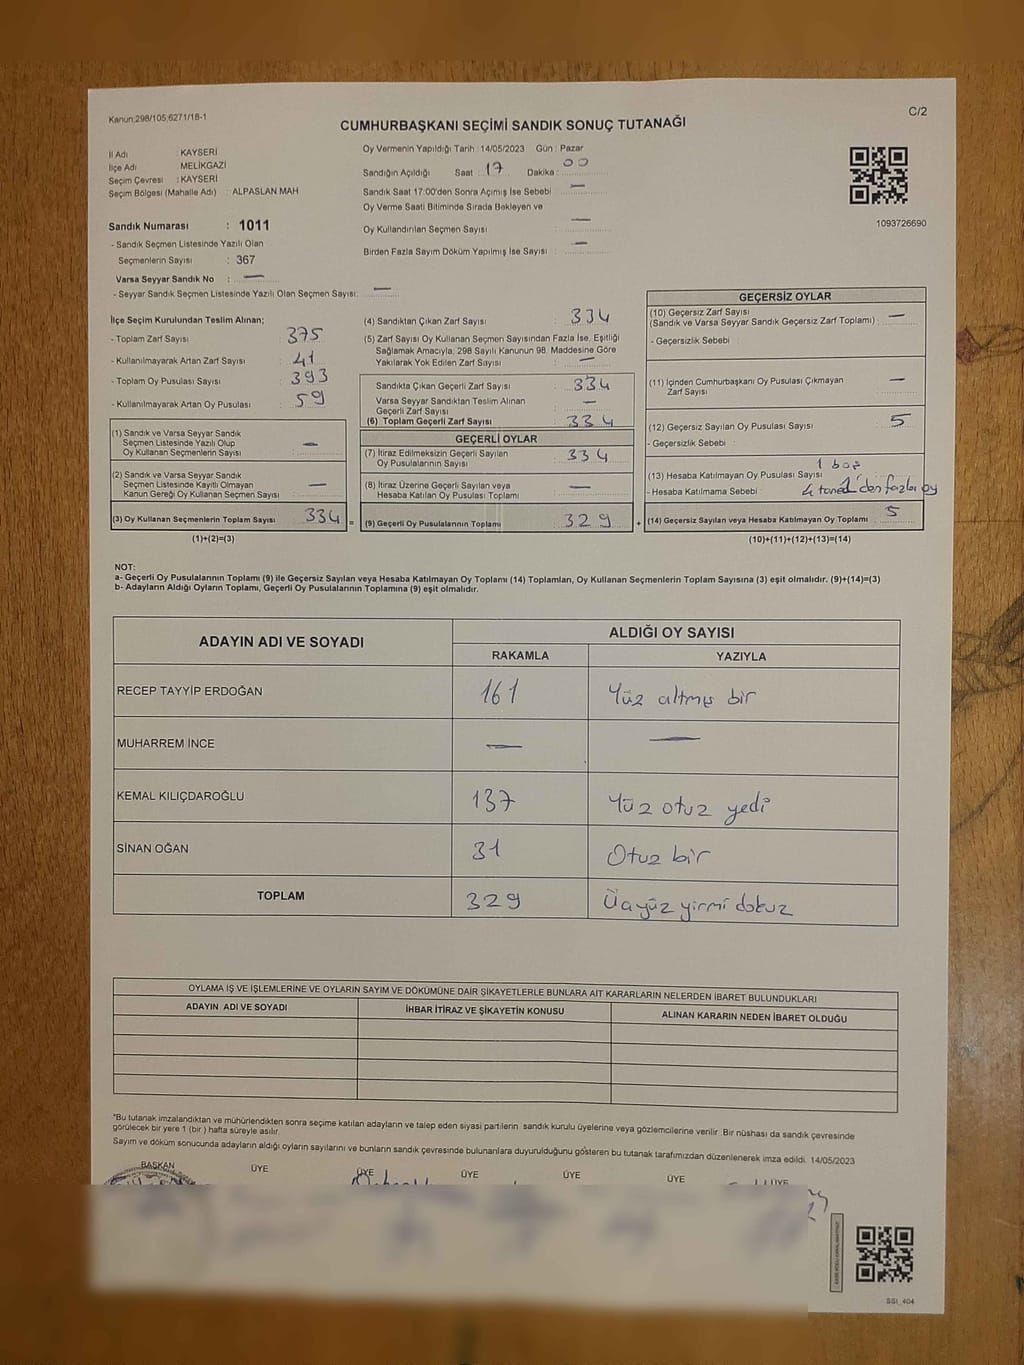 Kanun;298/105;6271/18-1
C/2
CUMHURBAŞKANI SEÇİMİ SANDIK SONUÇ TUTANAĞI
İl Adı : KAYSERİ
İlçe Adı : MELİKGAZİ
Seçim Çevresi : KAYSERİ
Seçim Bölgesi (Mahalle Adı) : ALPASLAN MAH
Sandık Numarası : 1011
- Sandık Seçmen Listesinde Yazılı Olan
Seçmenlerin Sayısı : 367
Varsa Seyyar Sandık No : —
- Seyyar Sandık Seçmen Listesinde Yazılı Olan Seçmen Sayısı: —
Oy Vermenin Yapıldığı Tarih : 14/05/2023 Gün : Pazar
Sandığın Açıldığı Saat : 17 Dakika : 00
Sandık Saat 17:00'den Sonra Açımış İse Sebebi : —
Oy Verme Saati Bitiminde Sırada Bekleyen ve
Oy Kullandırılan Seçmen Sayısı : —
Birden Fazla Sayım Döküm Yapılmış İse Sayısı : —
1093726690
İlçe Seçim Kurulundan Teslim Alınan;
- Toplam Zarf Sayısı : 375
- Kullanılmayarak Artan Zarf Sayısı : 41
- Toplam Oy Pusulası Sayısı : 393
- Kullanılmayarak Artan Oy Pusulası : 59
(1) Sandık ve Varsa Seyyar Sandık
Seçmen Listesinde Yazılı Olup
Oy Kullanan Seçmenlerin Sayısı : —
(2) Sandık ve Varsa Seyyar Sandık
Seçmen Listesinde Kayıtlı Olmayan
Kanun Gereği Oy Kullanan Seçmen Sayısı : —
(3) Oy Kullanan Seçmenlerin Toplam Sayısı : 334 =
(1)+(2)=(3)
(4) Sandıktan Çıkan Zarf Sayısı : 334
(5) Zarf Sayısı Oy Kullanan Seçmen Sayısından Fazla İse, Eşitliği
Sağlamak Amacıyla, 298 Sayılı Kanunun 98. Maddesine Göre
Yakılarak Yok Edilen Zarf Sayısı : —
Sandıkta Çıkan Geçerli Zarf Sayısı : 334
Varsa Seyyar Sandıktan Teslim Alınan
Geçerli Zarf Sayısı : —
(6) Toplam Geçerli Zarf Sayısı : 334
GEÇERLİ OYLAR
(7) İtiraz Edilmeksizin Geçerli Sayılan
Oy Pusulalarının Sayısı : 334
(8) İtiraz Üzerine Geçerli Sayılan veya
Hesaba Katılan Oy Pusulası Toplamı : —
(9) Geçerli Oy Pusulalarının Toplamı : 329 +
GEÇERSİZ OYLAR
(10) Geçersiz Zarf Sayısı
(Sandık ve Varsa Seyyar Sandık Geçersiz Zarf Toplamı) : —
- Geçersizlik Sebebi :
(11) İçinden Cumhurbaşkanı Oy Pusulası Çıkmayan
Zarf Sayısı : —
(12) Geçersiz Sayılan Oy Pusulası Sayısı : 5
- Geçersizlik Sebebi :
(13) Hesaba Katılmayan Oy Pusulası Sayısı : 1 boş
- Hesaba Katılmama Sebebi : 4 tane 1'den fazla oy
(14) Geçersiz Sayılan veya Hesaba Katılmayan Oy Toplamı : 5
(10)+(11)+(12)+(13)=(14)
NOT:
a- Geçerli Oy Pusulalarının Toplamı (9) ile Geçersiz Sayılan veya Hesaba Katılmayan Oy Toplamı (14) Toplamları, Oy Kullanan Seçmenlerin Toplam Sayısına (3) eşit olmalıdır. (9)+(14)=(3)
b- Adayların Aldığı Oyların Toplamı, Geçerli Oy Pusulalarının Toplamına (9) eşit olmalıdır.
ADAYIN ADI VE SOYADI
ALDIĞI OY SAYISI
RAKAMLA YAZIYLA
RECEP TAYYİP ERDOĞAN 161 Yüz altmış bir
MUHARREM İNCE — —
KEMAL KILIÇDAROĞLU 137 Yüz otuz yedi
SİNAN OĞAN 31 Otuz bir
TOPLAM 329 Üçyüz yirmi dokuz
OYLAMA İŞ VE İŞLEMLERİNE VE OYLARIN SAYIM VE DÖKÜMÜNE DAİR ŞİKAYETLERLE BUNLARA AİT KARARLARIN NELERDEN İBARET BULUNDUKLARI
ADAYIN ADI VE SOYADI İHBAR İTİRAZ VE ŞİKAYETİN KONUSU ALINAN KARARIN NEDEN İBARET OLDUĞU
*Bu tutanak imzalandıktan ve mühürlendikten sonra seçime katılan adayların ve talep eden siyasi partilerin sandık kurulu üyelerine veya gözlemcilerine verilir. Bir nüshası da sandık çevresinde
görülecek bir yere 1 (bir ) hafta süreyle asılır.
Sayım ve döküm sonucunda adayların aldığı oyların sayılarını ve bunların sandık çevresinde bulunanlara duyurulduğunu gösteren bu tutanak tarafımızdan düzenlenerek imza edildi. 14/05/2023
BAŞKAN ÜYE ÜYE ÜYE ÜYE ÜYE ÜYE
SSI_404